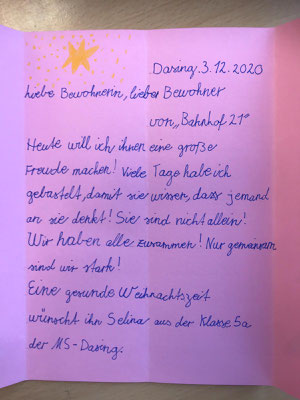 Dasing, 3.12.2020
Liebe Bewohnerin, lieber Bewohner
von „Bahnhof 21"
Heute will ich ihnen eine große
Freude machen! Viele Tage habe ich
gebastelt, damit sie wissen, dass jemand
an sie denkt! Sie sind nicht allein!
Wir haben alle zusammen! Nur gemeinsam
sind wir stark!
Eine gesunde Weihnachtszeit
wünscht ihn Selina aus der Klasse 5a
der MS-Dasing.